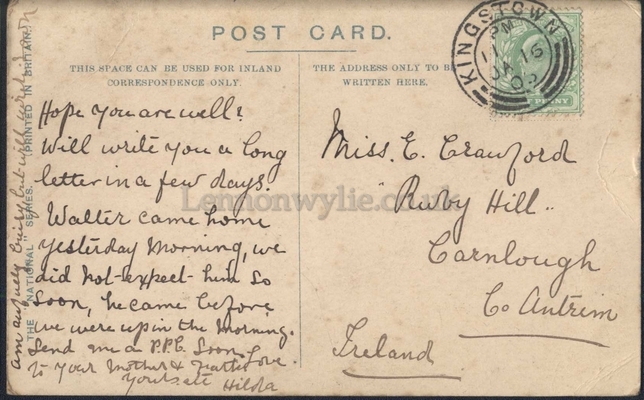 POST CARD.
THIS SPACE CAN BE USED FOR INLAND
CORRESPONDENCE ONLY.
THE ADDRESS ONLY TO BE
WRITTEN HERE.
KINGSTOWN
PM
11
JA 16
PENNY
Hope you are well?
Will write you a long
letter in a few days.
Walter came home
yesterday Morning, we
did not expect him so
soon, he came before
we were up in the Morning.
Send me a P.P.C. Soon
To Your Mother & Love.
Hilda
am awfully busy but will write soon
THE "NATIONAL" SERIES. PRINTED IN BRITAIN.
Miss. E. Crawford
"Ruby Hill"
Carnlough
Co Antrim
Ireland
Lennonwylie.co.uk